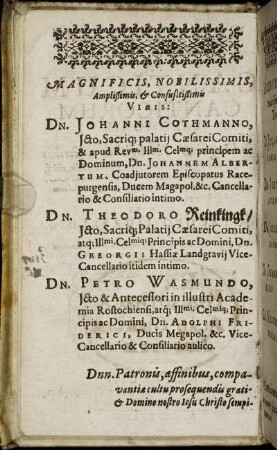 MAGNIFICIS, NOBILISSIMIS,
Amplissimis, & Consultissimis
VIRIS:
DN. JOHANNI COTHMANNO,
JCto, Sacriq; palatij Cæsarei Comiti,
& apud Revmi. Illmi. Celmiq; principem ac
Dominum, Dn. JOHANNEM ALBER-
TUM. Coadjutorem Episcopatus Race-
purgensis, Ducem Magapol. &c. Cancella-
rio & Consiliario intimo.
DN. THEODORO Reinkingk/
JCto, Sacriq; Palatij Cæsarei Comiti,
atq; Illmi. Celmiq; Principis ac Domini, Dn.
GREORGII Hassiæ Landgravij Vice-
Cancellario itidem intimo.
DN. PETRO WASMUNDO,
JCto & Antecessori in illustri Acade
mia Rostochiensi, atq; Illmi. Celmiq; Prin-
cipis ac Domini, Dn. ADOLPHI FRI-
DERICI, Ducis Megapol. &c. Vice-
Cancellario & Consiliario aulico.
Dnn. Patronis, affinibus, compa-
vantiæ cultu prosequendis grati-
& Domino nostro Iesu Christo sempi-